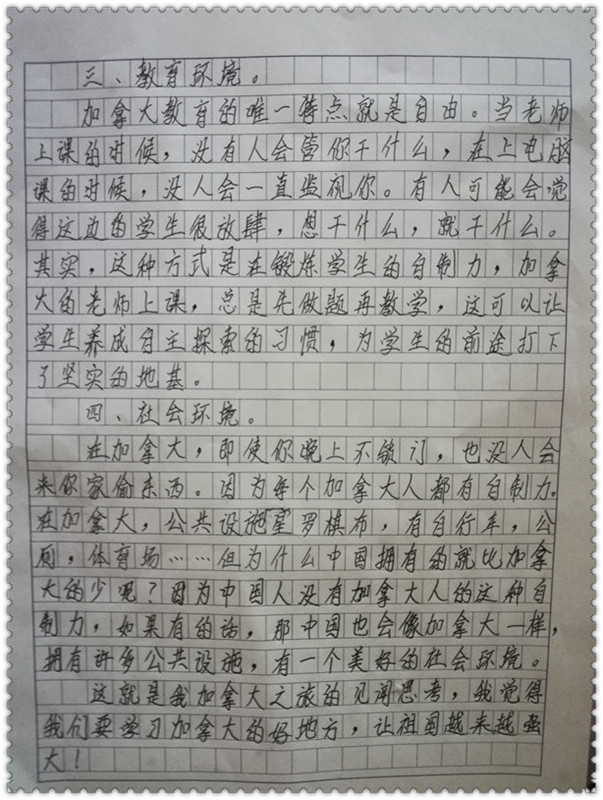 三、教育环境。
加拿大教育的唯一特点就是自由。当老师
上课的时候，没有人会管你干什么，在上电脑
课的时候，没人会一直监视你。有人可能会觉
得这边的学生很放肆，想干什么，就干什么。
其实，这种方式是在锻炼学生的自制力，加拿
大的老师上课，总是先做题再教学，这可以让
学生养成自主探索的习惯，为学生的前途打下
了坚实的地基。
四、社会环境。
在加拿大，即使你晚上不锁门，也没人会
来你家偷东西。因为每个加拿大人都有自制力。
在加拿大，公共设施星罗棋布，有自行车，公
厕，体育场……但为什么中国拥有的就比加拿
大的少呢？因为中国人没有加拿大人的这种自
制力，如果有的话，那中国也会像加拿大一样，
拥有许多公共设施，有一个美好的社会环境。
这就是我加拿大之旅的见闻思考，我觉得
我们要学习加拿大的好地方，让祖国越来越强
大！